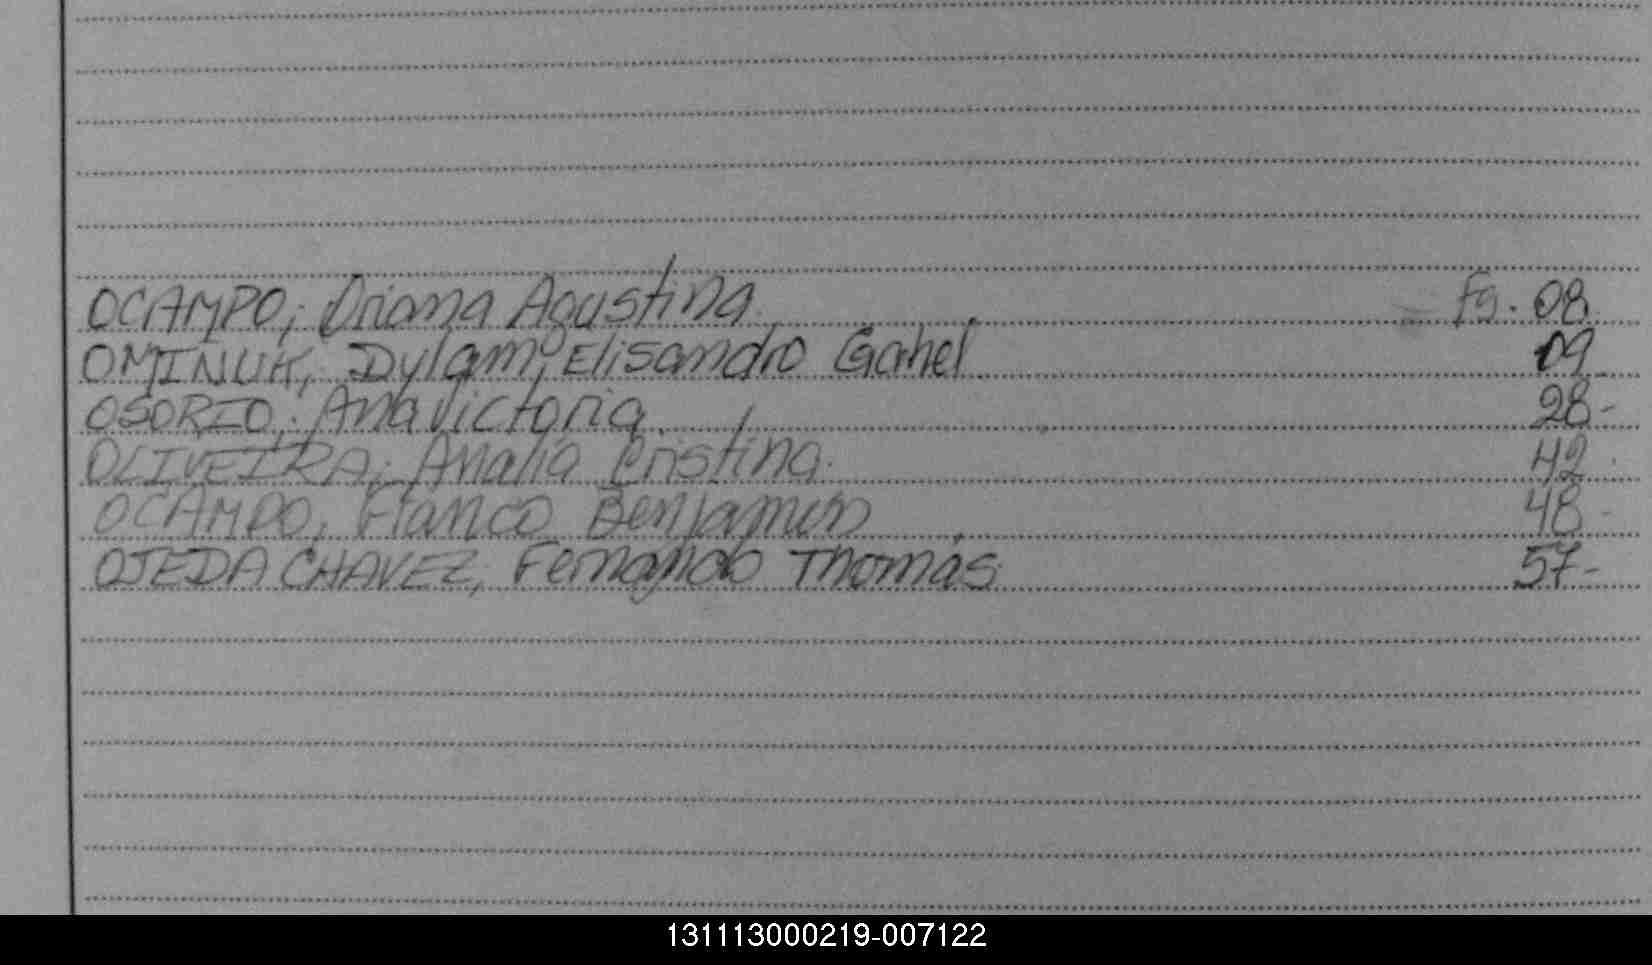 OCAMPO; Oriana Agustina. Fg. 08.
OMINUK, Dylam, Elisandro Gahel. 09
OSORIO; Ana Victoria. 28-
OLIVEIRA; Analia Cristina. 42.
OCAMPO, Franco Benjamin 48-
OJEDA CHAVEZ, Fernando Thomás. 57-
131113000219-007122